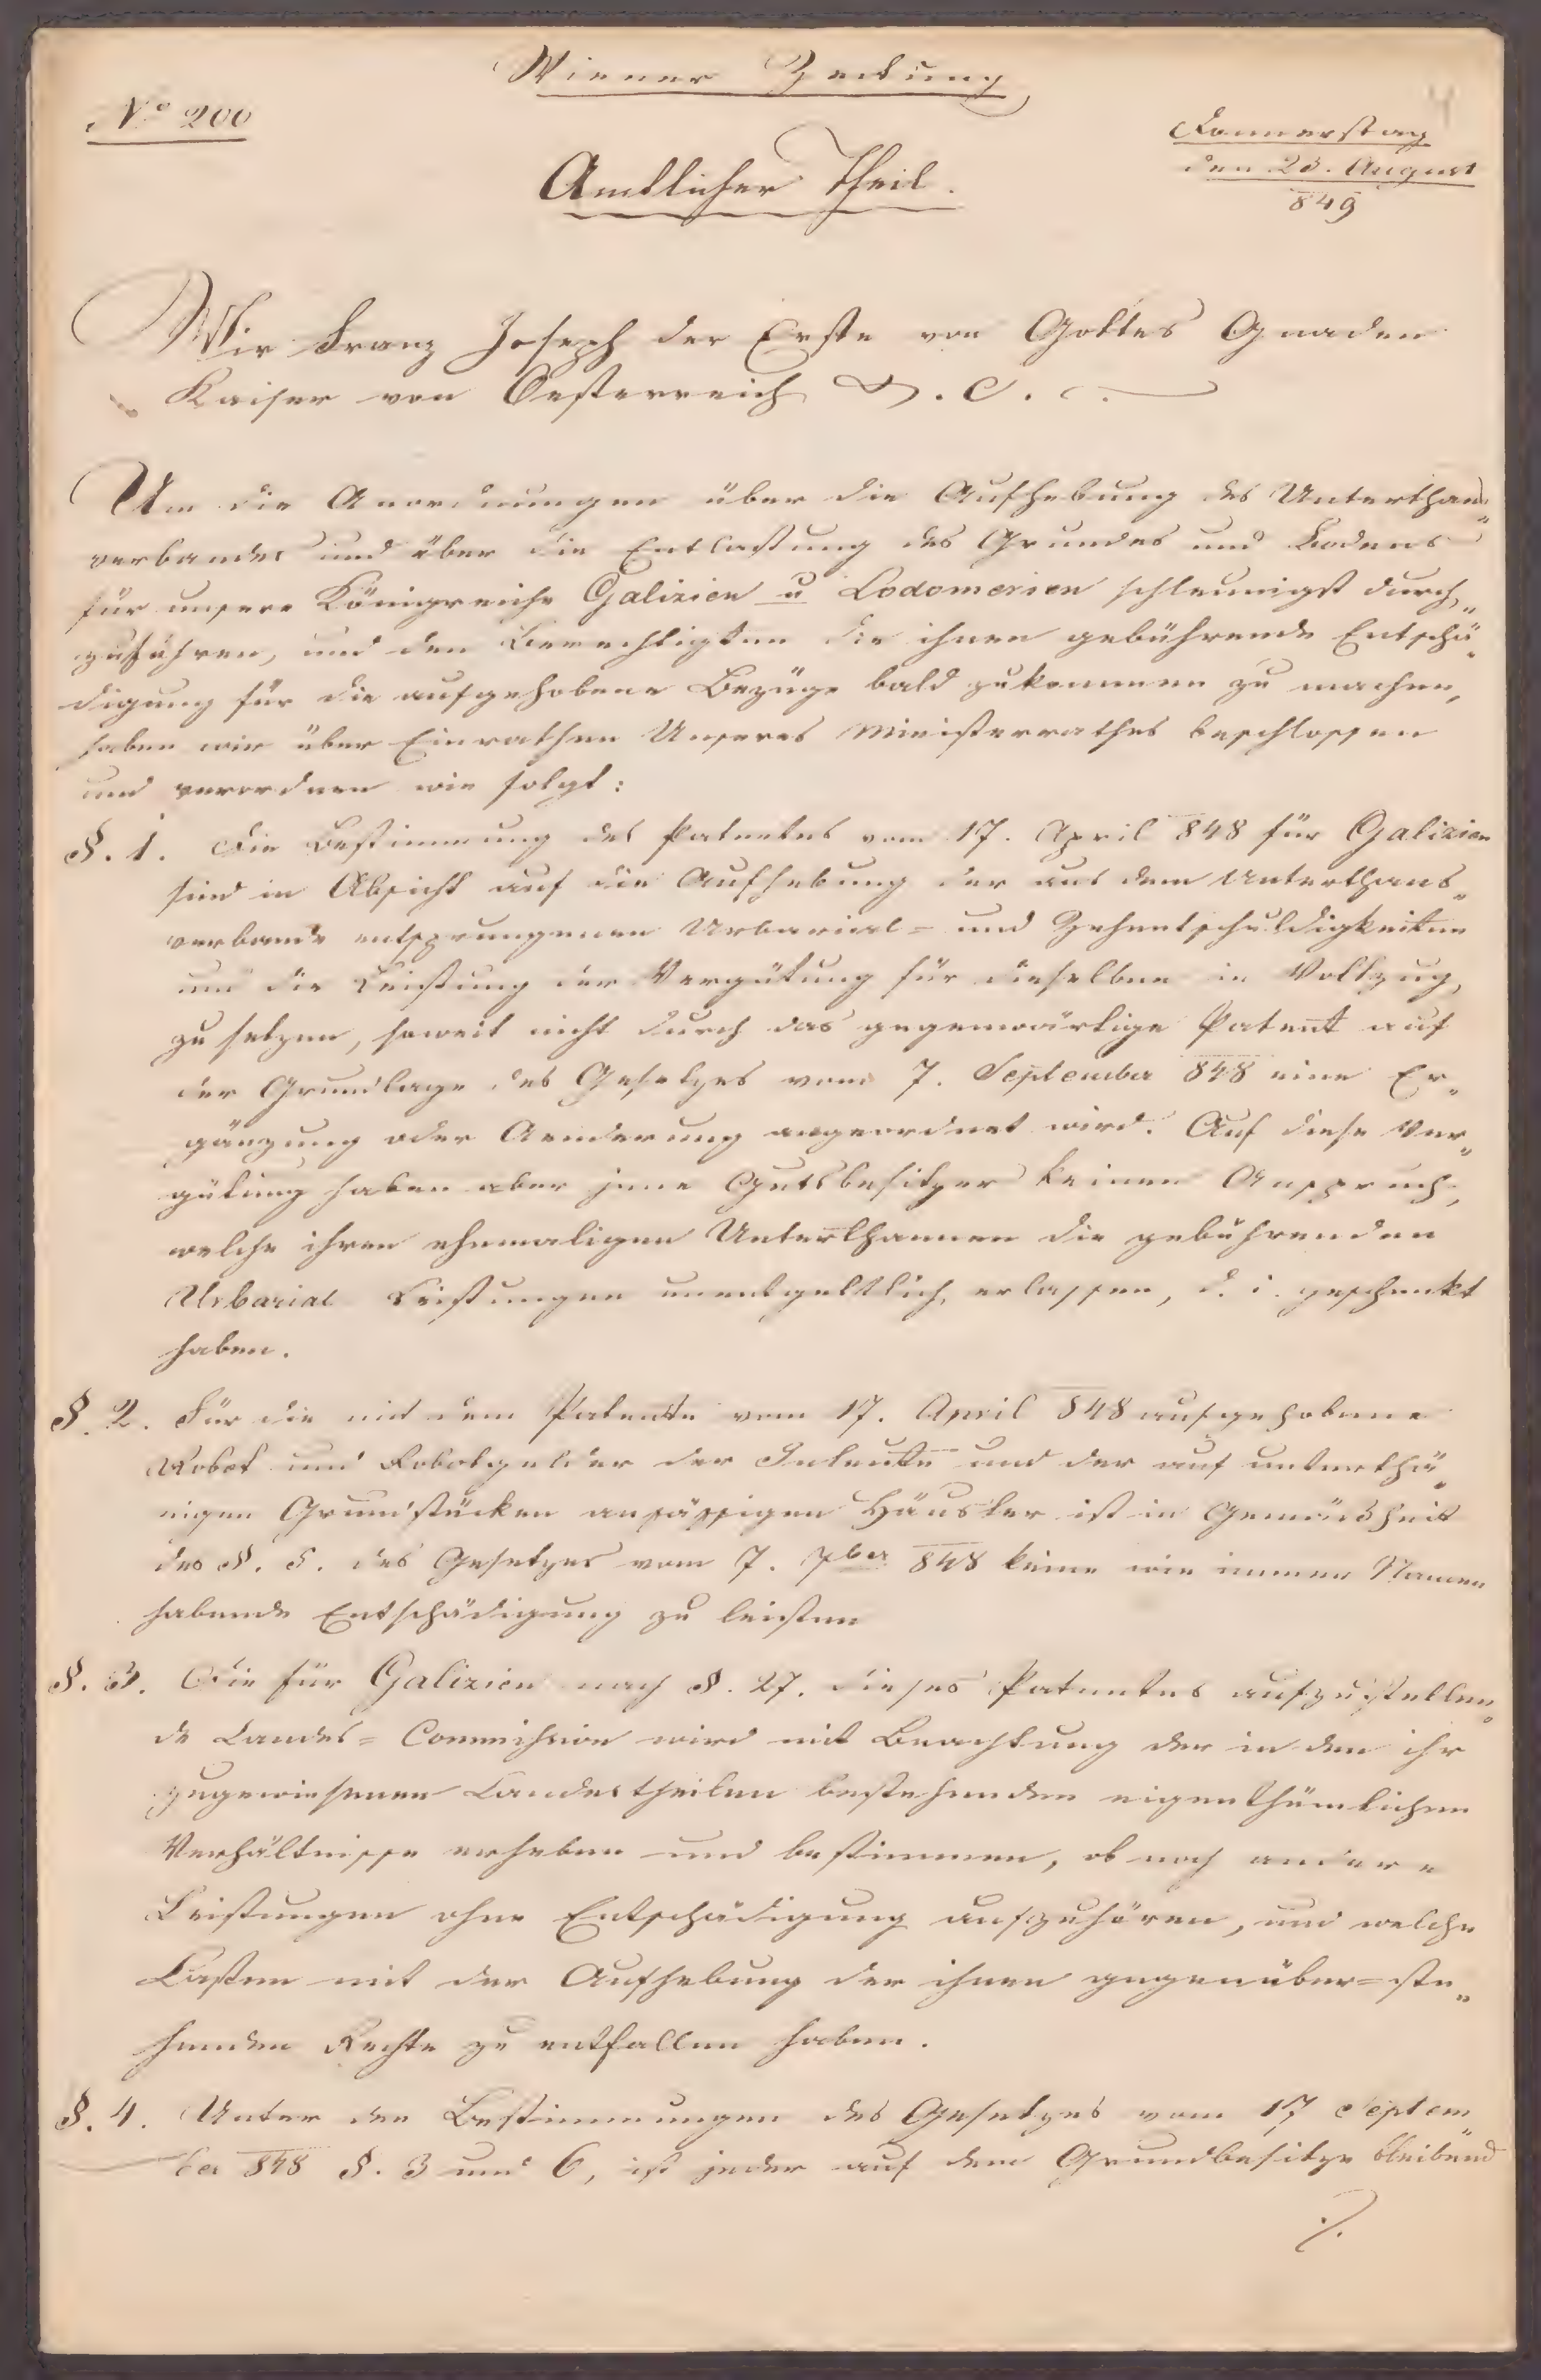 Wiener Zeitung
4
Nº 200
Donnerstag
den 23. August
849
Amtlicher Theil.
Wir Franz Joseph der Erste von Gottes Gnaden
Kaiser von Oesterreich &. c.
Um die Anordnungen über die Aufhebung des Unterthans„
verbandes und über die Entlastung des Grundes und Bodens
für unsere Königreiche Galizien u Lodomerien schleunigst durch„
zuführen, und den Berechtigten die ihnen gebührende Entschä„
digung für die aufgehobene Bezüge bald zukommen zu machen,
haben wir über Einrathen Unseres Ministerrathes beschlossen
und verordnen wie folgt:
§. 1. Die Bestimmung des Patentes vom 17. April 848 für Galizien
sind in Absicht auf die Aufhebung der aus dem Unterthans„
verbande entsprungenen Urbarial= und Zehentschuldigkeiten
und die Leistung der Vergütung für dieselben in Vollzug
zu setzen, soweit nicht durch das gegenwärtige Patent auf
der Grundlage des Gesetzes vom 7. September 848 eine Er„
gänzung oder Aenderung angeordnet wird. Auf diese Ver„
gütung haben aber jene Gutsbesitzer keinen Anspruch,
welche ihren ehemaligen Unterthannen die gebührenden
Urbarial Leistungen unentgeltlich erlassen, d. i. geschenkt
haben.
§. 2. Für die mit dem Patente vom 17. April 848 aufgehobene
Robot und Robotgelder der Inleute und der auf unterthä„
nigen Grundstücken ansässigen Häusler ist in Gemäßheit
des §. 5. des Gesetzes vom 7. 7ber 848 keine wie immer Namen
habende Entschädigung zu leisten
§. 3. Die für Galizien nach §. 27. dieses Patentes aufzustellen„
de Landes= Commission wird mit Beachtung der in den ihr
zugewiesenen Landestheilen bestehenden eigenthümlichen
Verhältnisse erheben und bestimmen, ob noch andere
Leistungen ohne Entschädigung aufzuhören, und welche
Lasten mit der Aufhebung der ihnen gegenüber=ste„
henden Rechte zu entfallen haben.
§. 4. Unter den Bestimmungen des Gesetzes vom 17 Septem
ber 848 §. 3 und 6, ist jeder auf dem Grundbesitze bleibend
./.